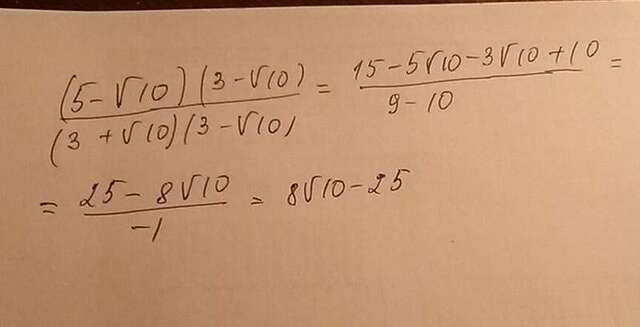 (5-√10)(3-√10) / (3+√10)(3-√10) = 15-5√10-3√10+10 / 9-10 =
= 25-8√10 / -1 = 8√10-25